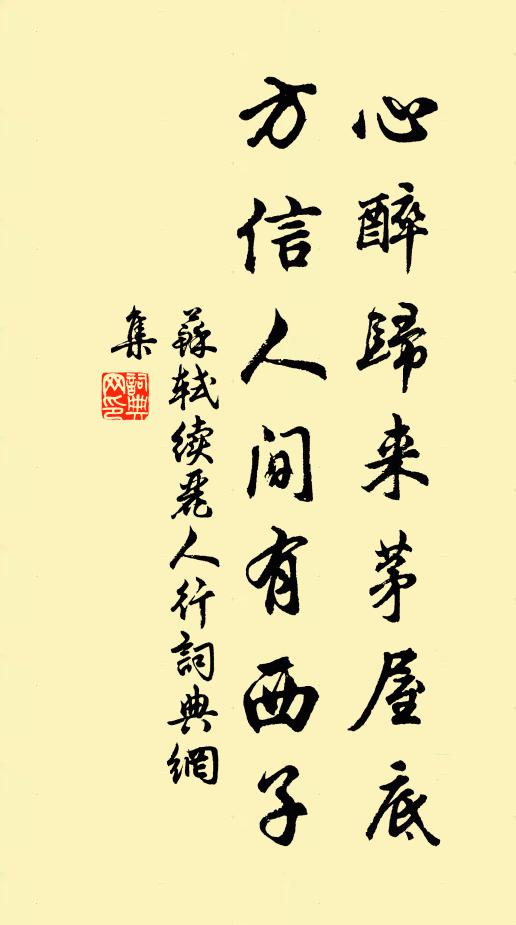 心醉歸来茅屋底
方信人间有西子
蘇軾续麗人行詞典網
集
詞典
网印